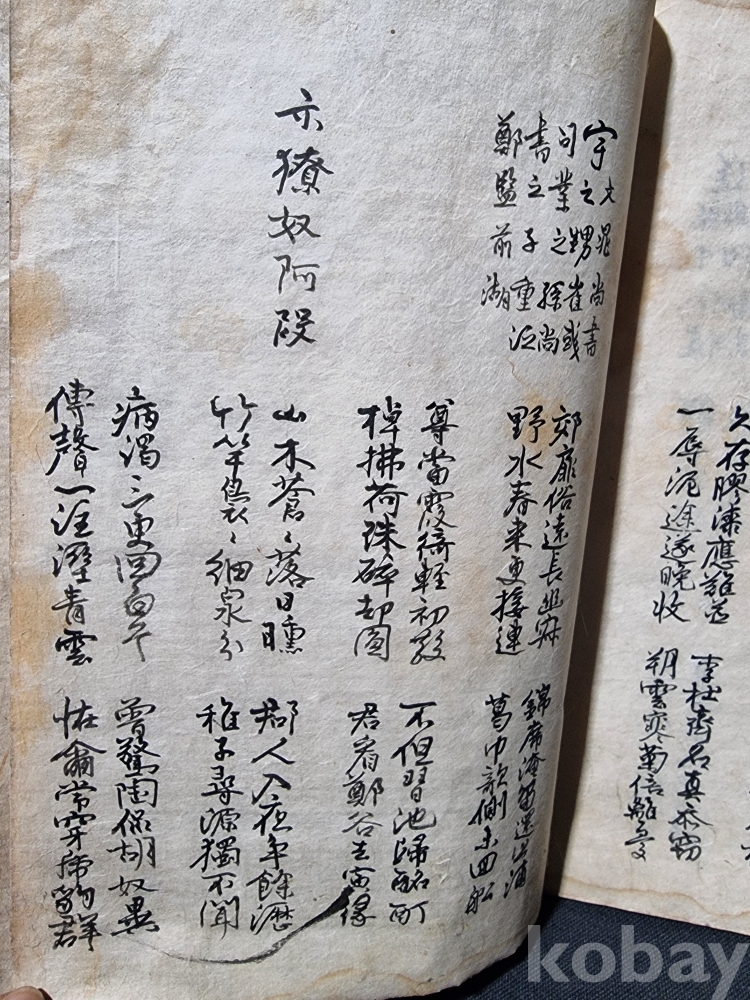 久存膠漆應難並
一辱泥途遂晚收
李杜齊名真忝竊
朔雲寒菊倍離憂
宇文晁尚書
之甥崔彧
司業之孫尚
書之子重泛
鄭監前湖
郊扉俗遠長幽寂
野水春來更接連
錦席淹留還出浦
葛巾欹側未回船
尊當霞綺輕初散
棹拂荷珠碎却圓
不但習池歸酩酊
君看鄭谷去夤緣
示獠奴阿段
山木蒼〻落日曛
竹竿裊〻細泉分
郡人入夜爭餘瀝
稚子尋源獨不聞
病渴三更回白首
傳聲一注濕青雲
曾驚陶侃胡奴異
怪爾常穿虎豹群
kobay